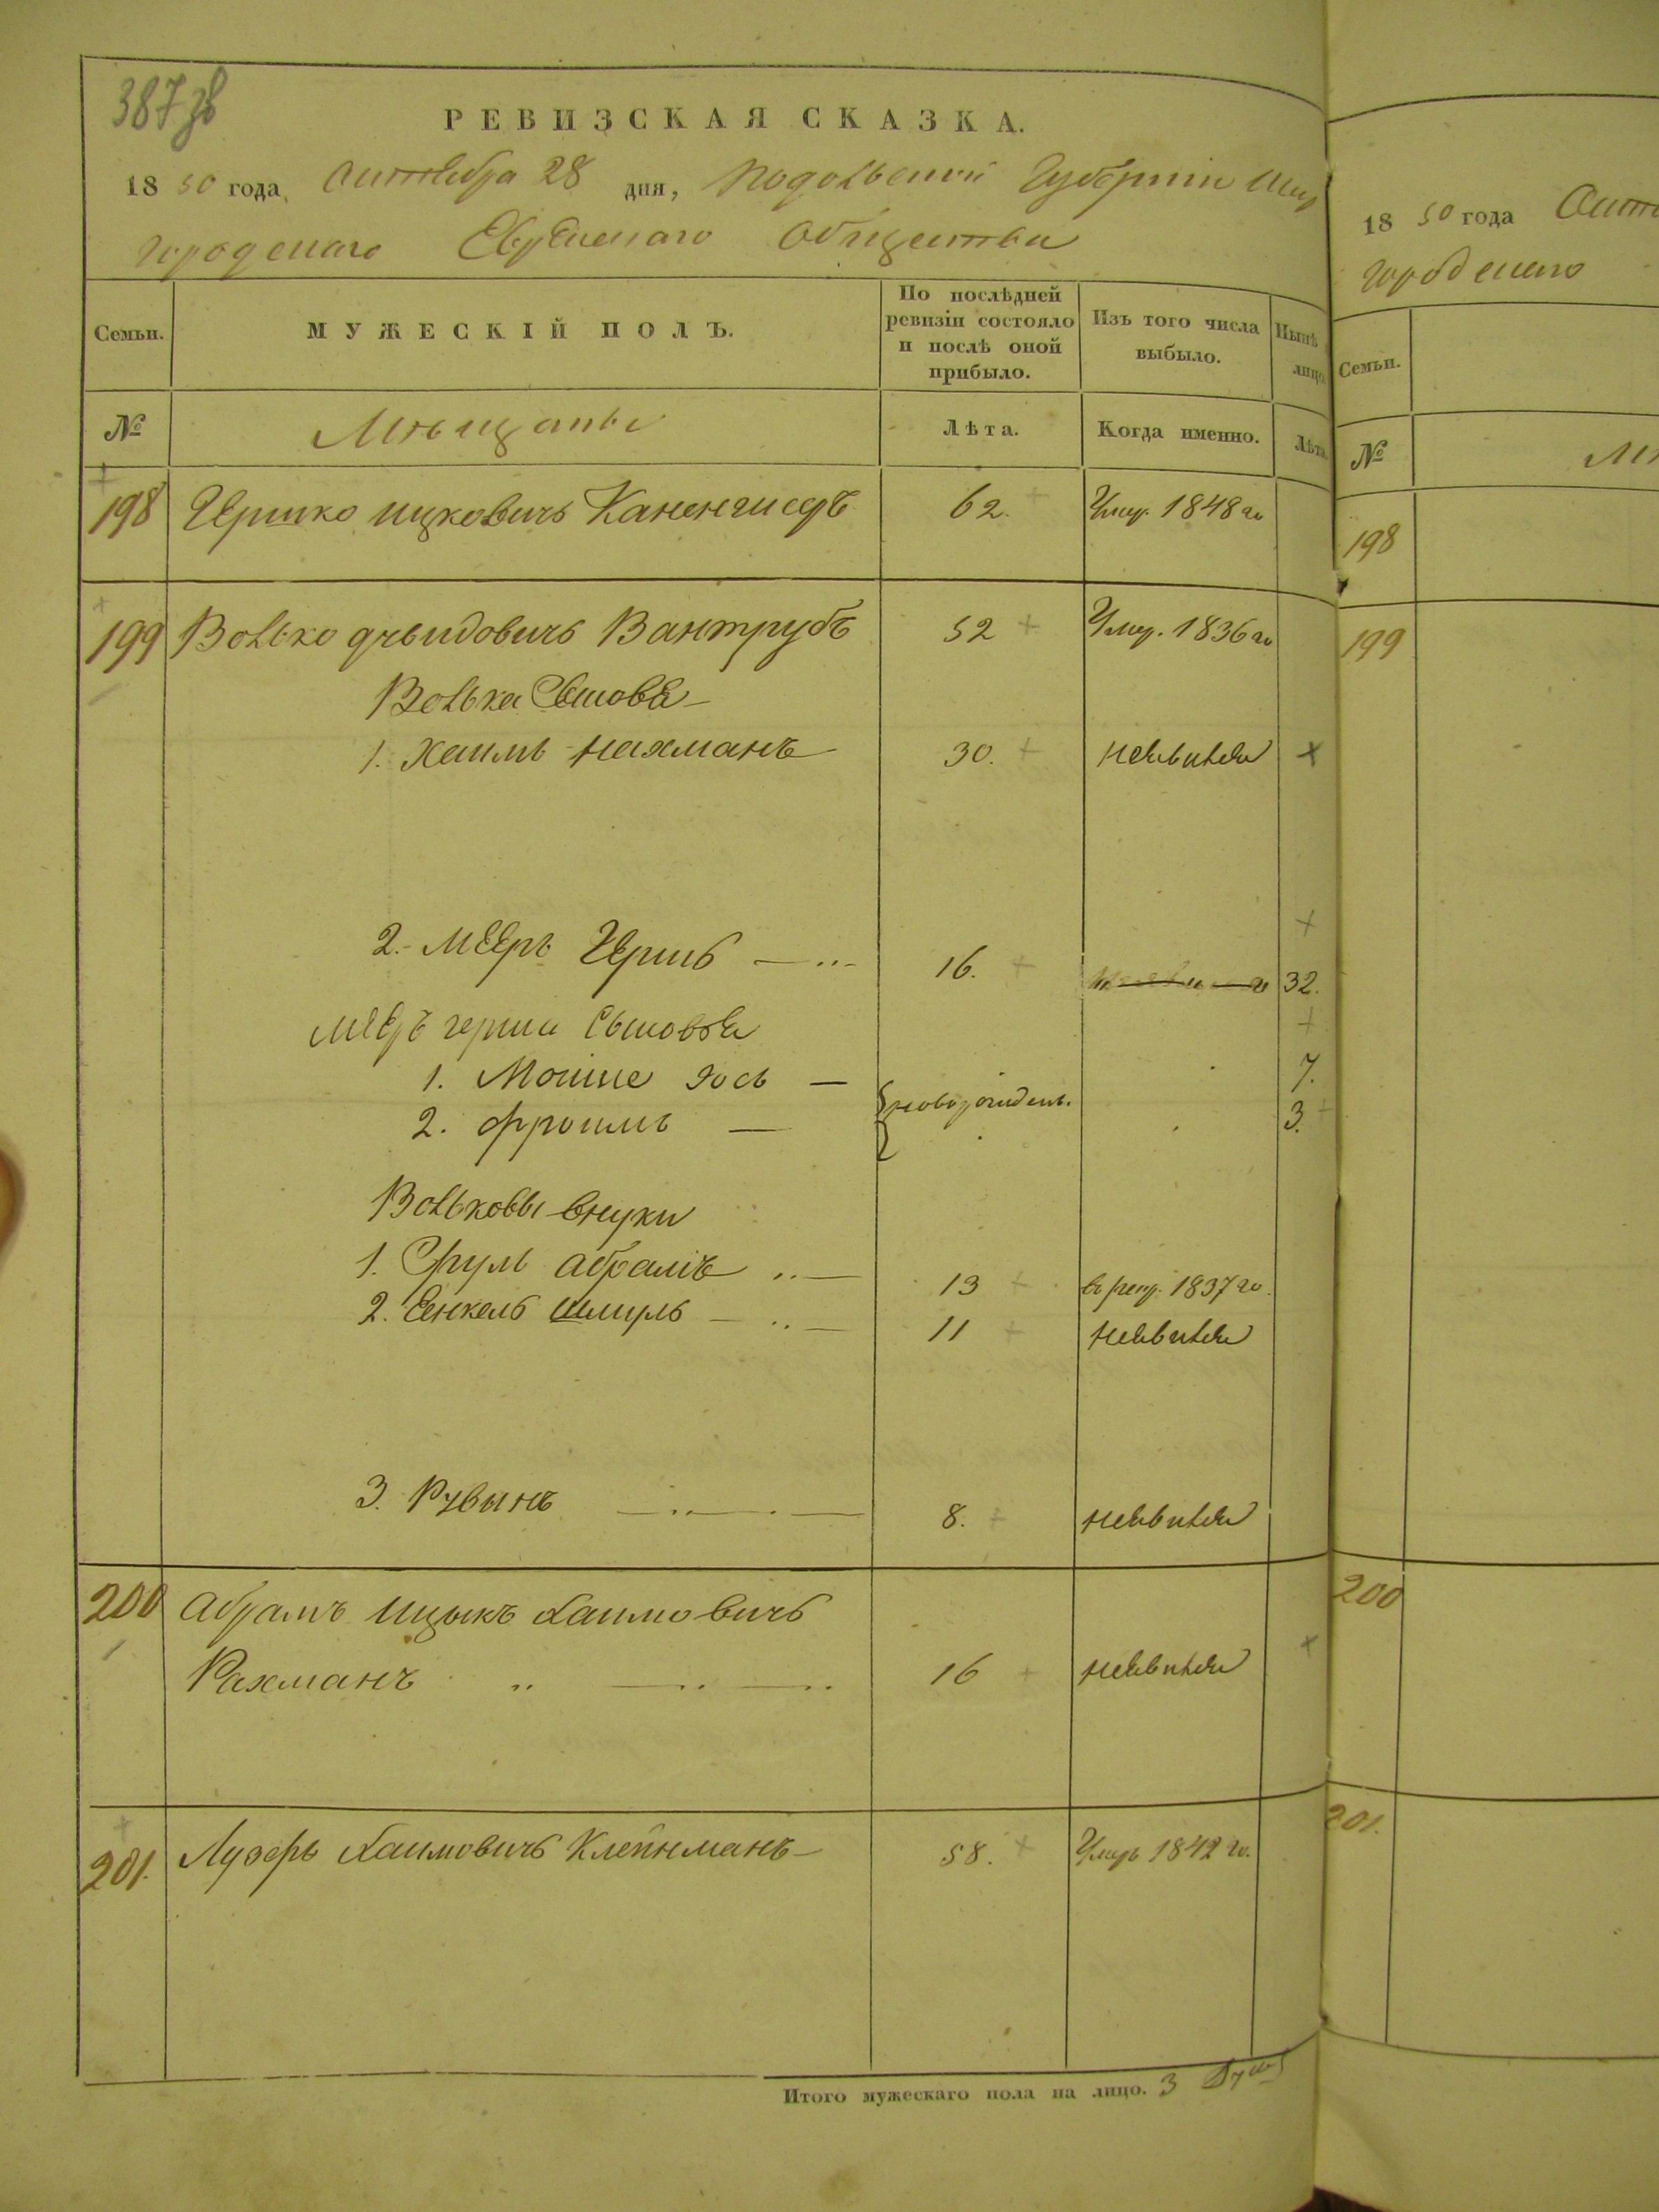 387 зв
РЕВИЗСКАЯ СКАЗКА.
18 50 года, Октября 28 дня, Подольской Губернии Шар
городскаго Еврейскаго Общества
Семьи.
МУЖЕСКІЙ ПОЛЪ.
По послѣдней ревизіи состояло и послѣ оной прибыло.
Изъ того числа выбыло.
Нынѣ лицо
№
Мѣщаны
Лѣта.
Когда именно.
Лѣта.
198 Гершко Ицковичъ Каненгисеръ 62. Умер. 1848 го
199 Волько Дувидовичъ Вантрубъ 52 Умер. 1836 го
Волька Сыновья
1. Хаимъ Нахманъ 30. неявился
2. Мееръ Гершъ 16. 32.
Меера Герша Сыновья
1. Мошке Іось 7.
2. Фроимъ новорожден. 3.
Вольковы внуки
1. Сруль Абрамъ 13 в рекр. 1837 го.
2. Еенкель Шмуль 11 неявился
3. Рувынъ 8. неявился
200 Абрамъ Ицыкъ Хаимовичъ
Рахманъ 16 неявился
201. Лузеръ Хаимовичъ Клейнманъ 58. Умеръ 1842 го.
Итого мужескаго пола на лицо. 3 душ
18 50 года Октя
городскаго
Семьи.
№
198
199
200
201.